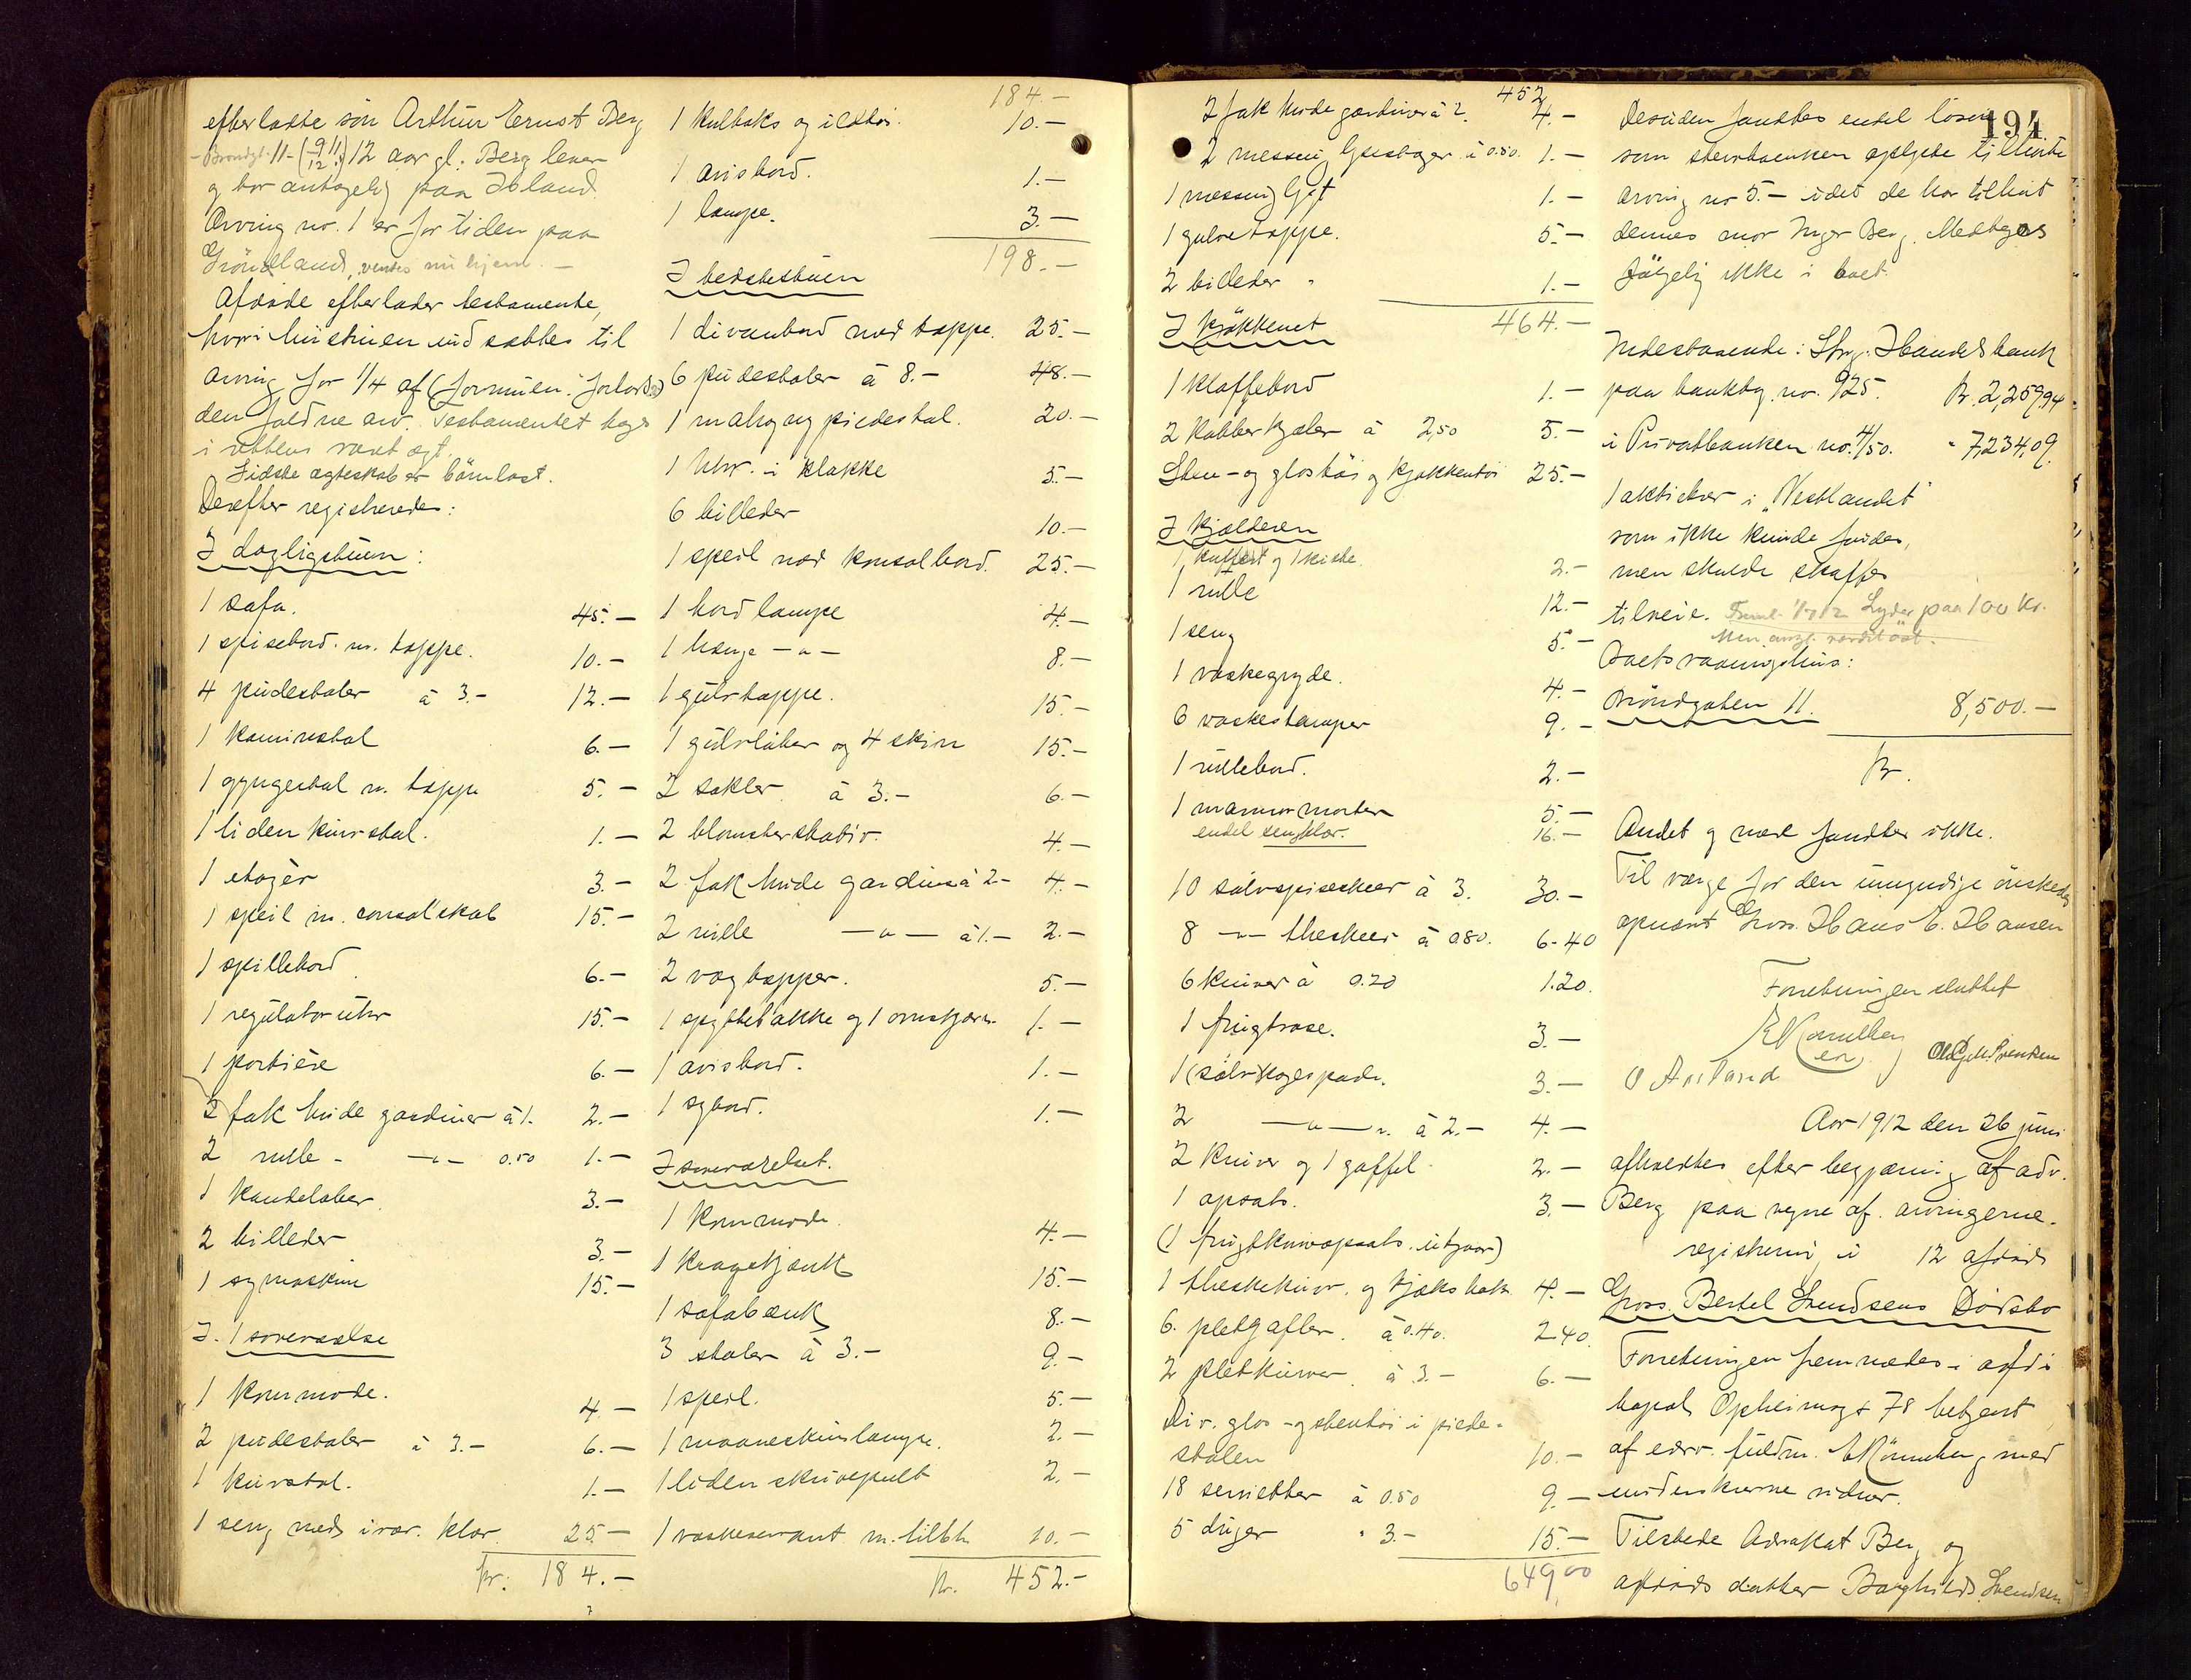 efterladte søn Arthur Ernst Berg
- Brøndgt. 11 - (9/12 11) 12 aar gl. Berg lever
og bor antagelig paa Island.
Arving no. 1 er for tiden paa
Grønland, ventes nu hjem. —
Afdøde efterlader testamente,
hvori hustruen indsættes til
arving for 1/4 af (formuen: forlods)
den faldne arv. Testamentet
i rettens
Sidste ægteskab er børnløst.
Derefter registreredes:
I dagligstuen:
1 sofa. 45.—
1 spisebord m. tæppe. 10.—
4 pudestoler à 3.— 12.—
1 kaminstol 6.—
1 gyngestol m. tæppe 5.—
1 liden kurvstol. 1.—
1 etagèr 3.—
1 speil m. consolskab 15.—
1 spillebord 6.—
1 regulatoruhr 15.—
1 portière 6.—
2 fak hvide gardiner à 1. 2.—
2 rulle - —"— 0.50 1.—
1 kandelaber 3.—
2 billeder 3.—
1 symaskin 15.—
I. 1 soverværelse
1 kommode. 4.—
2 pudestoler à 3.— 6.—
1 kurvstol. 1.—
1 seng med ivær. klær. 25.—
kr: 184.—
184.—
1 kulboks og ildtøi. 10.—
1 avisbord. 1.—
1 lampe. 3.—
198.—
I bedstestuen
1 divanbord med tæppe. 25.—
6 pudestoler à 8.— 48.—
1 mahogny piedestal. 20.—
1 uhr. i klokke 5.—
6 billeder 10.—
1 speil med konsolbord. 25.—
1 bordlampe 4.—
1 hænge —"— 8.—
1 gulvtæppe. 15.—
1 gulvløber og 4 skin 15.—
2 søkler à 3.— 6.—
2 blomsterstativ. 4.—
2 fak hvide gardiner à 2— 4.—
2 rulle —"— à 1.— 2.—
2 vægtepper. 5.—
1 spyttebakke og 1 ovnskjærm. 1.—
1 avisbord. 1.—
1 sybord. 1.—
I soveværelset.
1 kommode. 4.—
1 krageskjænk 15.—
1 sofabænk 8.—
3 stoler à 3.— 9.—
1 speil. 5.—
1 maaneskinslampe. 2.—
1 liden skrivepult 2.—
1 vaskeservant m. tilbh. 10.—
kr. 452.—
452
2 fak hvide gardiner à 2. 4.—
2 messing lysestager à 0.50. 1.—
1 messing 1.—
1 gulvtæppe. 5.—
2 billeder " 1.—
464.—
I kjøkkenet
1 klaffebord 1.—
2 kobberkjeler à 2,50 5.—
Sten- og glastøi og kjøkkentøi 25.—
I kjælderen
1 kuffert og 1 kiste. 2.—
1 rulle 12.—
1 seng 5.—
1 vaskegryde. 4.—
6 vaskestamper 9.—
1 rullebord. 2.—
1 marmormorter 5.—
endel sengklær. 16.—
10 sølvspiseskeer à 3. 30.—
8 —"— theskeer à 0.80. 6.40
6 kniver à 0.20 1.20.
1 frugtvase. 3.—
1 (sølv) kagespade. 3.—
2 —"— ". à 2.— 4.—
2 kniver og 1 gaffel. 2.—
1 opsats. 3.—
(1 frugtknivopsats. utgaar)
1 theskekurv. og kjæksboks. 4.—
6. pletgafler. à 0.40. 2.40.
2 pletkurver à 3.— 6.—
Div. glas- og stentøi i piede-
stalen 10.—
18 servietter à 0.50 9.—
5 duger " 3.— 15.—
649,00
194
Desuden fandtes endel løsøre
som stervboenken oplyste tilhørte
arving no 5.— idet de har tilhørt
dennes mor Inger Berg. Medtages
følgelig ikke i boet.
Indestaaende: Stvg. Handelsbank
paa bankbg. no. 925. kr. 2,259,94
i Privatbanken no. 4/50. " 7,234,09.
1 aktiebrev i "Vestlandet"
som ikke kunde findes,
men skulde skaffes
tilveie. Lyder paa 100 kr.
Men verdiløst.
Boets vaaningshus:
Brøndgaten 11. 8,500.—
kr.
Andet og mere fandtes ikke.
Til værge for den umyndige ønskedes
opnævnt Gross. Hans E. Hansen
Forretningen sluttet
O Aarland
Aar 1912 den 26 juni
afholdtes efter begjæring af adv.
Berg paa vegne af. arvingerne.
registrering i 12 afdøde
Gross. Bertel Svendsens Dødsbo
Forretningen fremmedes i afdødes
bopæl, Opheimsgt 78 betjent
af edsv. fuldm. E Rönneberg med
underskrevne vidner.
Tilstede Advokat Berg og
afdødes datter Borghild Svendsen